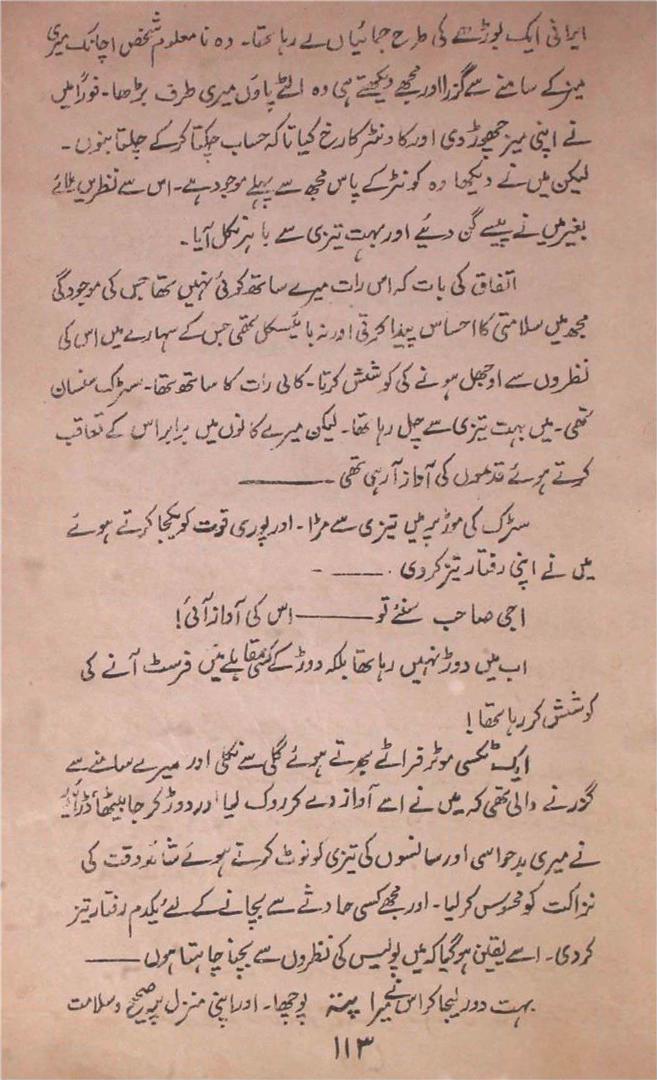 ایرانی ایک بوڑھے کی طرح جمائیاں لے رہا تھا۔ وہ نا معلوم شخص اچانک میری
میز کے سامنے سے گزرا اور مجھے دیکھتے ہی وہ الٹے پاؤں میری طرف بڑھا۔ فوراً میں
نے اپنی میز چھوڑ دی اور کاونٹر کا رخ کیا تاکہ حساب چکتا کر کے چلتا بنوں۔
لیکن میں نے دیکھا وہ کونٹر کے پاس مجھ سے پہلے موجود ہے۔ اس سے نظریں ملائے
بغیر میں نے پیسے گن دیئے اور بہت تیزی سے باہر نکل آیا۔
اتفاق کی بات کہ اس رات میرے ساتھ کوئی نہیں تھا جس کی موجودگی
مجھ میں سلامتی کا احساس پیدا کرتی اور نہ بائیسکل تھی جس کے سہارے میں اس کی
نظروں سے اوجھل ہونے کی کوشش کرتا۔ کالی رات کا ساتھ تھا۔ سڑک سنسان
تھی۔ میں بہت تیزی سے چل رہا تھا۔ لیکن میرے کانوں میں برابر اس کے تعاقب
کرتے ہوئے قدموں کی آواز آرہی تھی ———
سڑک کی موڑ پہ میں تیزی سے مڑا۔ اور پوری قوت کو یکجا کرتے ہوئے
میں نے اپنی رفتار تیز کر دی ۔ ——— ۔
اجی صاحب سنئے تو ——— اس کی آواز آئی!
اب میں دوڑ نہیں رہا تھا بلکہ دوڑ کے کسی مقابلے میں فرسٹ آنے کی
کوشش کر رہا تھا!
ایک ٹکسی موٹر فراٹے بھرتے ہوئے گلی سے نکلی اور میرے سامنے سے
گزرنے والی تھی کہ میں نے اسے آواز دے کر روک لیا اور دوڑ کر جا بیٹھا ڈرائیور
نے میری بدحواسی اور سانسوں کی تیزی کو نوٹ کرتے ہوئے شائد وقت کی
نزاکت کو محسوس کر لیا۔ اور مجھے کسی حادثے سے بچانے کے لئے یکدم رفتار تیز
کر دی۔ اسے یقین ہو گیا کہ میں پولیس کی نظروں سے بچنا چاہتا ہوں ———
بہت دور لیجا کر اس نے میرا پتہ پوچھا۔ اور اپنی منزل پہ صحیح و سلامت
۱۱۳